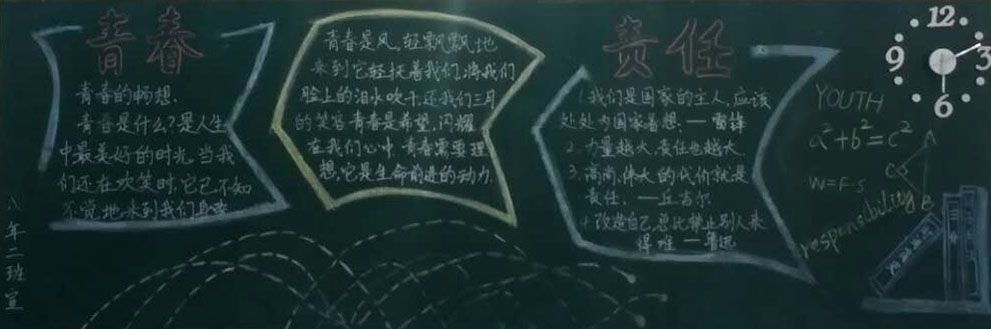 青春
青春的畅想.
青春是什么?是人生
中最美好的时光.当我
们还在欢笑时,它已不知
不觉地来到我们身旁
青春是风,轻飘飘地
来到它轻抚着我们,将我们
脸上的泪水吹干,还我们三月
的笑容.青春是希望,闪耀
在我们心中.青春需要理
想,它是生命前进的动力.
责任
1.我们是国家的主人,应该
处处为国家着想.——雷锋
2.力量越大,责任也越大
3.高尚,伟大的代价就是
责任. ——丘吉尔
4.改造自己总比禁止别人来
得难——鲁迅
12
9
3
6
YOUTH
a²+b²=c²
W=F·s
A
C
B
responsibility
八年二班宣